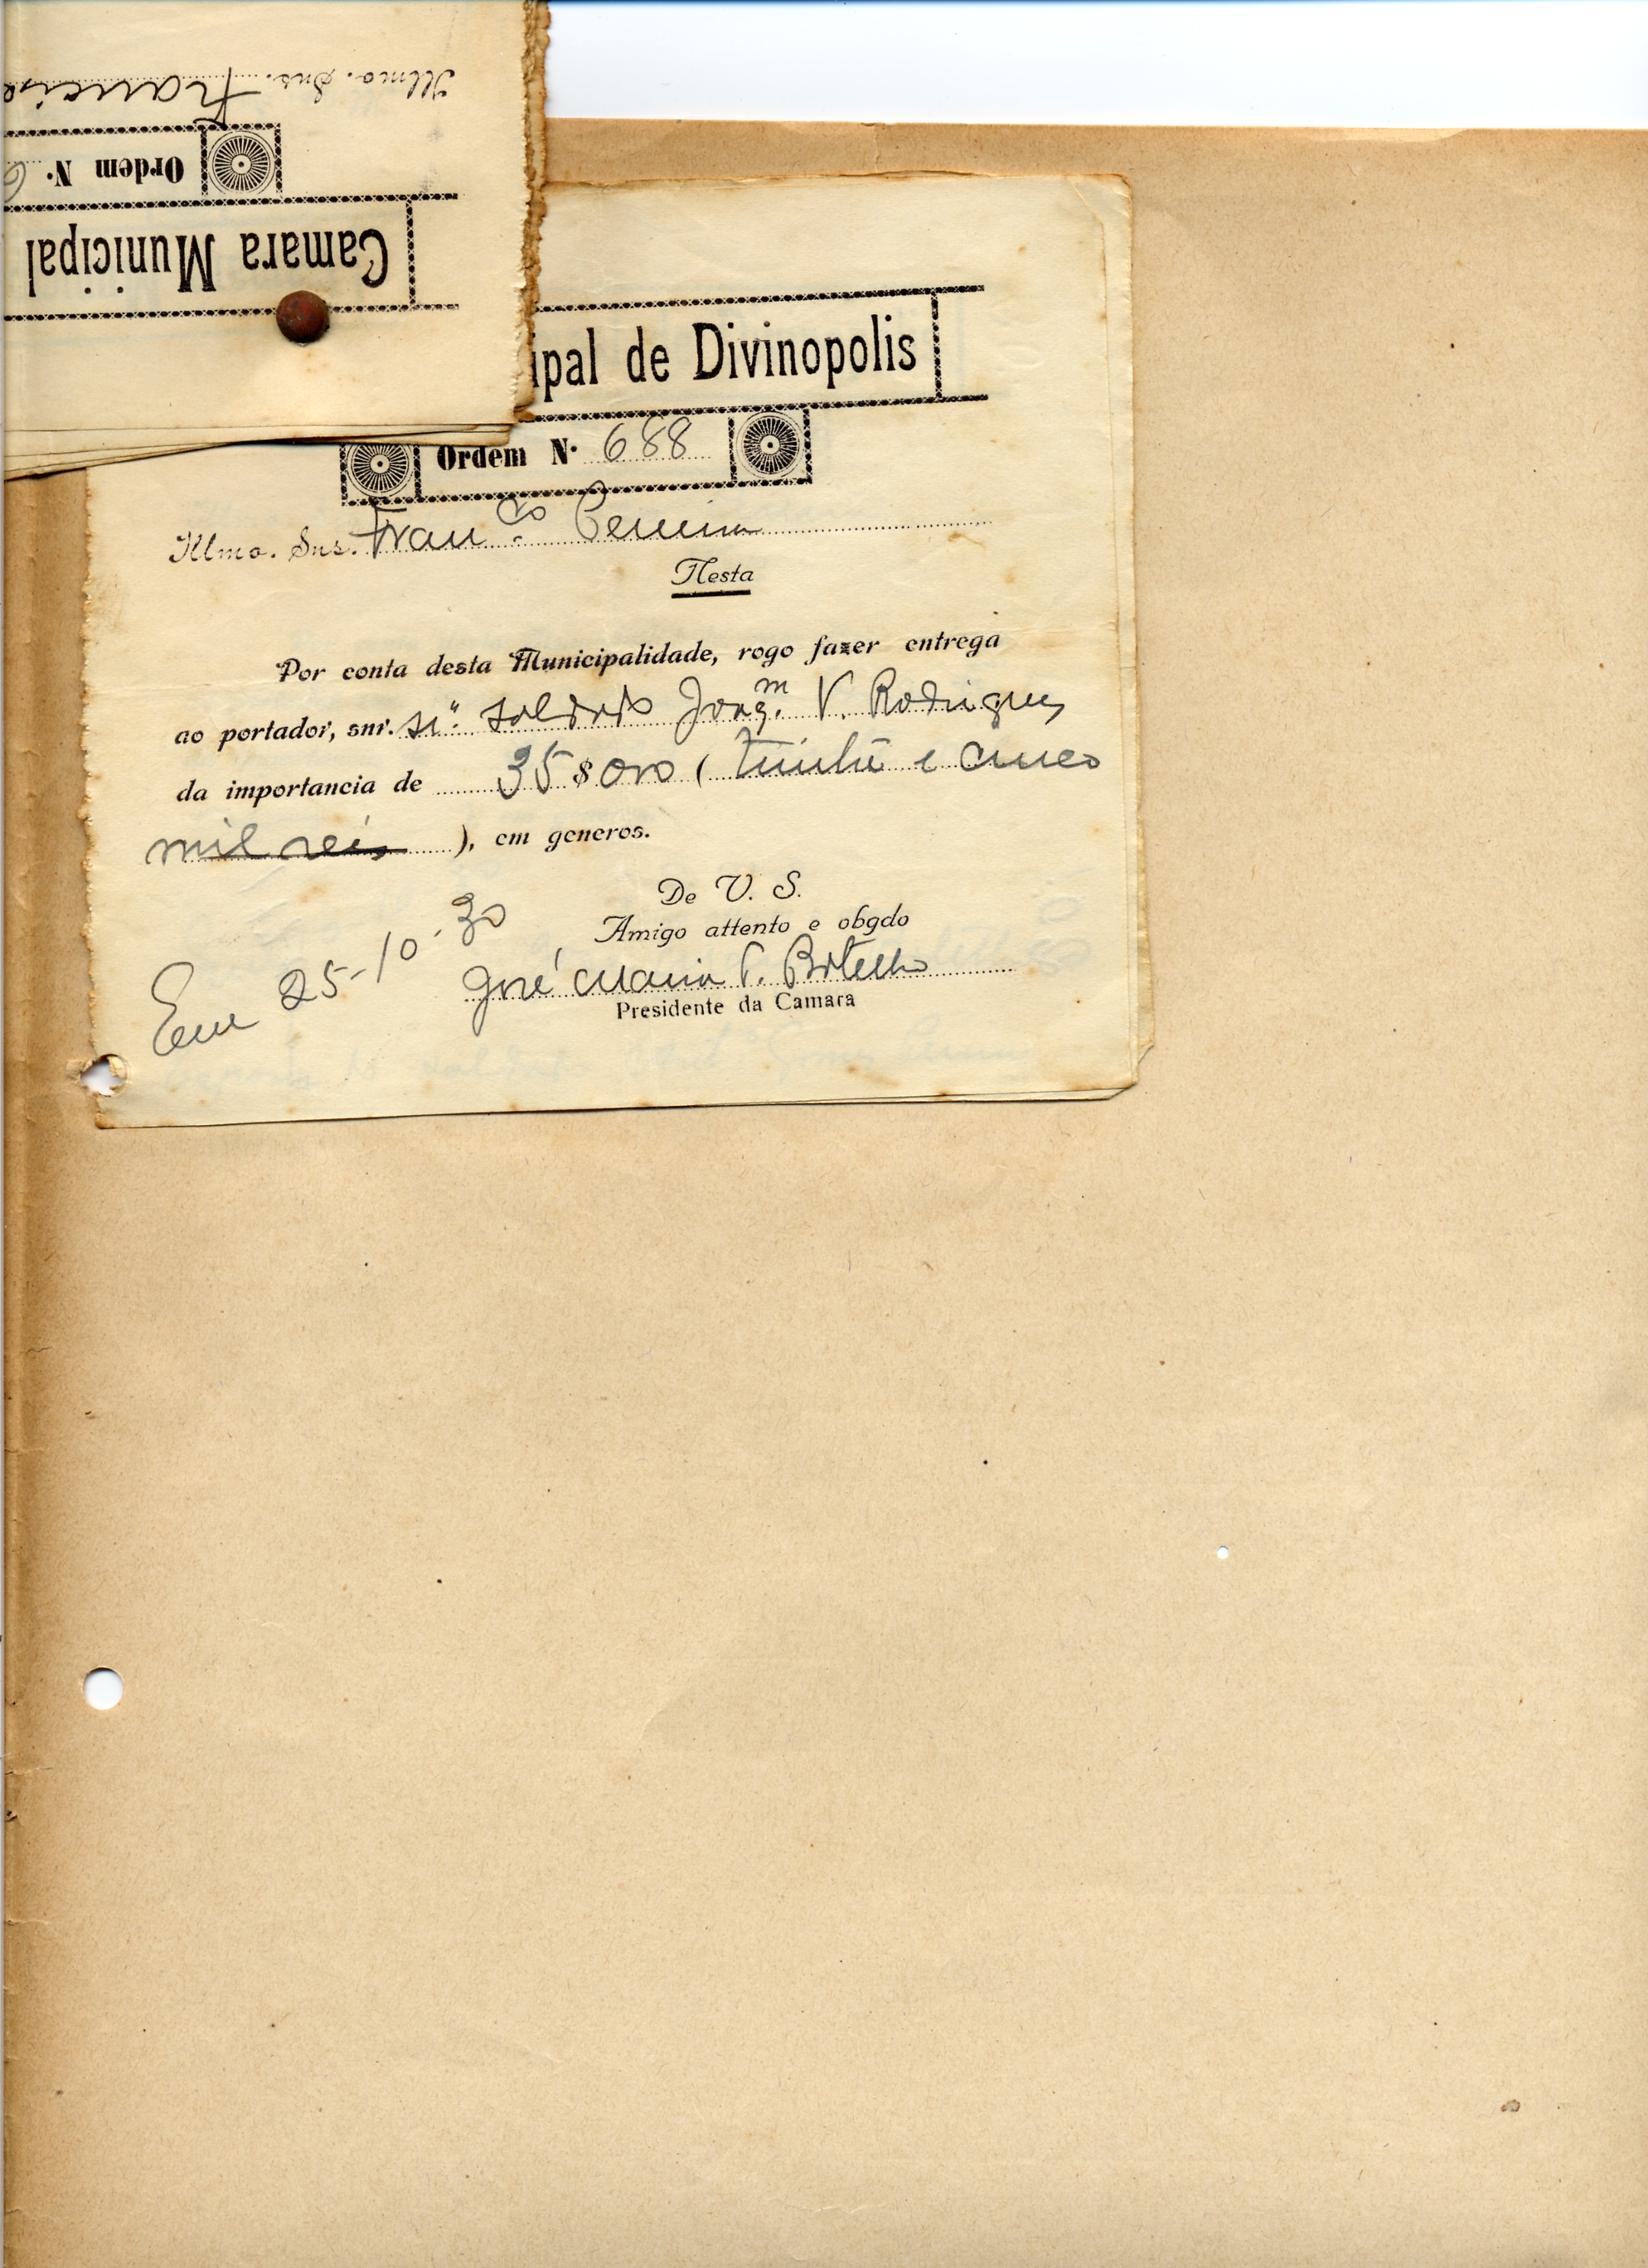 Illmo. Snr. Francis
Ordem N. 6
Camara Municipal
ipal de Divinopolis
Ordem N. 688
Illmo. Snr. Fran.co Pereira
Nesta
Por conta desta Municipalidade, rogo fazer entrega
ao portador, snr. soldado Joaq.m V. Rodrigues
da importancia de 35$000 (trinta e cinco
mil reis), em generos.
De V. S.
Amigo attento e obgdo
Em 25-10-30
José Maria Botelho
Presidente da Camara